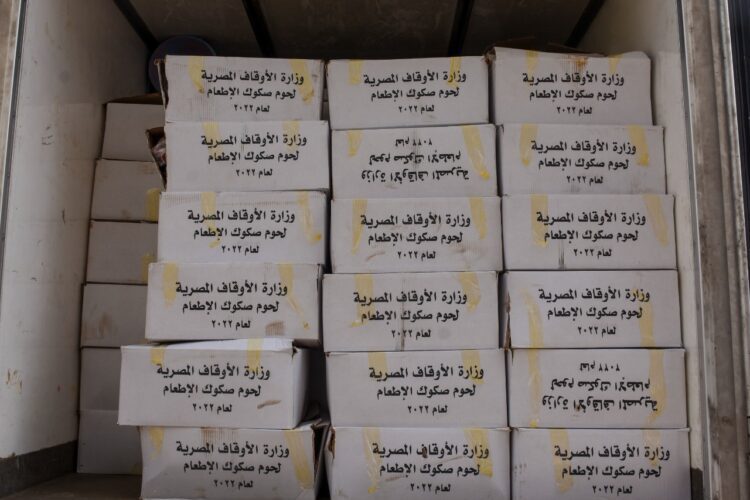 وزارة الأوقاف المصرية
لحوم صكوك الإطعام
لعام ٢٠٢٢
وزارة الأوقاف المصرية
لحوم صكوك الإطعام
لعام ٢٠٢٢
وزارة الأوقاف المصرية
لحوم صكوك الإطعام
لعام ٢٠٢٢
وزارة الأوقاف المصرية
لحوم صكوك الإطعام
لعام ٢٠٢٢
وزارة الأوقاف المصرية
لحوم صكوك الإطعام
لعام ٢٠٢٢
وزارة الأوقاف المصرية
لحوم صكوك الإطعام
لعام ٢٠٢٢
وزارة الأوقاف المصرية
لحوم صكوك الإطعام
لعام ٢٠٢٢
وزارة الأوقاف المصرية
لحوم صكوك الإطعام
لعام ٢٠٢٢
وزارة الأوقاف المصرية
لحوم صكوك الإطعام
لعام ٢٠٢٢
وزارة الأوقاف المصرية
لحوم صكوك الإطعام
لعام ٢٠٢٢
وزارة الأوقاف المصرية
لحوم صكوك الإطعام
لعام ٢٠٢٢
وزارة الأوقاف المصرية
لحوم صكوك الإطعام
لعام ٢٠٢٢
وزارة الأوقاف المصرية
لحوم صكوك الإطعام
لعام ٢٠٢٢
وزارة الأوقاف المصرية
لحوم صكوك الإطعام
لعام ٢٠٢٢
وزارة الأوقاف المصرية
لحوم صكوك الإطعام
لعام ٢٠٢٢
وزارة الأوقاف المصرية
لحوم صكوك الإطعام
لعام ٢٠٢٢
وزارة الأوقاف المصرية
لحوم صكوك الإطعام
لعام ٢٠٢٢
وزارة الأوقاف المصرية
لحوم صكوك الإطعام
لعام ٢٠٢٢